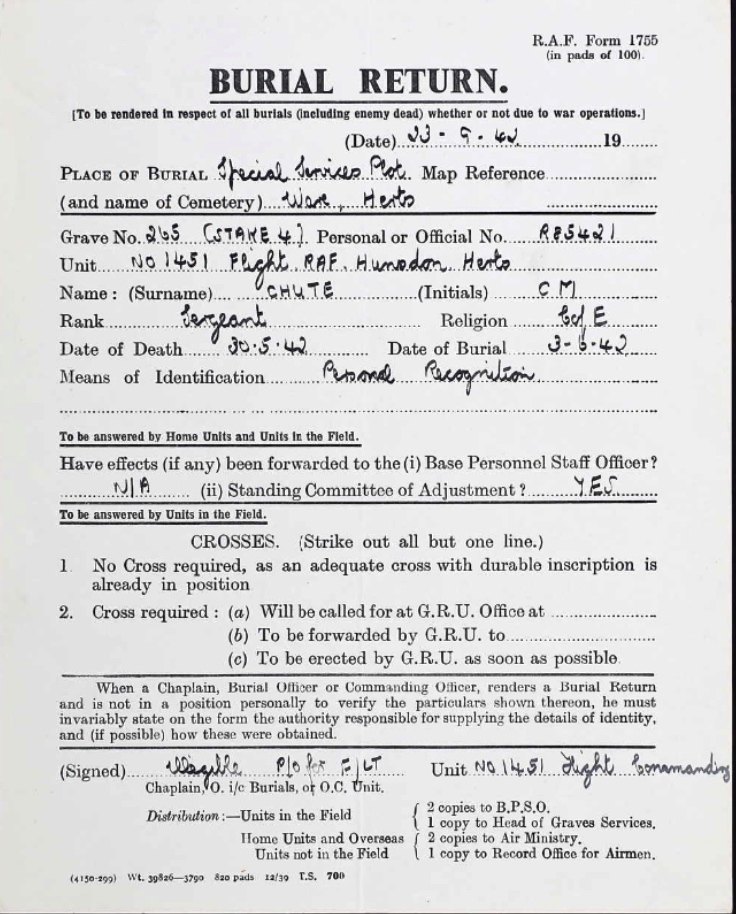 R.A.F. Form 1755
(in pads of 100).
BURIAL RETURN.
[To be rendered in respect of all burials (including enemy dead) whether or not due to war operations.]
(Date) 23 - 9 - 42 19
PLACE OF BURIAL Special Services Plot. Map Reference
(and name of Cemetery) Ware, Herts
Grave No. 265 (STAKE 4.) Personal or Official No. R85421
Unit NO 1451 Flight, RAF, Hunsdon, Herts
Name : (Surname) CHUTE (Initials) C M
Rank Sergeant Religion C of E
Date of Death 30.5.42 Date of Burial 3-6-42
Means of Identification Personal Recognition.
To be answered by Home Units and Units in the Field.
Have effects (if any) been forwarded to the (i) Base Personnel Staff Officer?
N/A (ii) Standing Committee of Adjustment? YES
To be answered by Units in the Field.
CROSSES. (Strike out all but one line.)
1. No Cross required, as an adequate cross with durable inscription is
already in position
2. Cross required : (a) Will be called for at G.R.U. Office at
(b) To be forwarded by G.R.U. to
(c) To be erected by G.R.U. as soon as possible.
When a Chaplain, Burial Officer or Commanding Officer, renders a Burial Return
and is not in a position personally to verify the particulars shown thereon, he must
invariably state on the form the authority responsible for supplying the details of identity,
and (if possible) how these were obtained.
(Signed) Illegible P/O for F/LT Unit NO 1451 Flight Commanding
Chaplain, O. i/c Burials, or O.C. Unit.
Distribution :—Units in the Field { 2 copies to B.P.S.O.
1 copy to Head of Graves Services.
Home Units and Overseas { 2 copies to Air Ministry.
Units not in the Field 1 copy to Record Office for Airmen.
(4150-299) Wt. 39826—3790 820 pads 12/39 T.S. 700